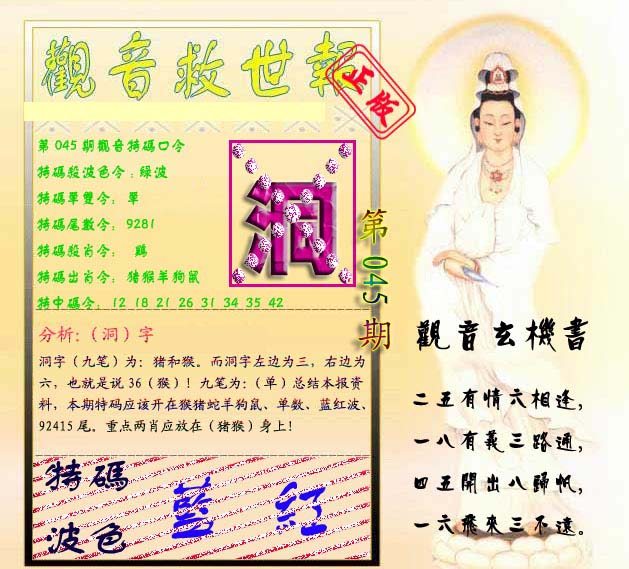 觀音救世報
正版
第045期觀音特碼口令
特碼殺波色令:綠波
特碼單雙令: 單
特碼尾數令: 9281
特碼殺肖令: 鷄
特碼出肖令: 豬猴羊狗鼠
特中碼令: 12 18 21 26 31 34 35 42
洞
第045期
分析:(洞)字
洞字(九笔)为:猪和猴。而洞字左边为三,右边为
六,也就是说36(猴)!九笔为:(单)总结本报资
料,本期特码应该开在猴猪蛇羊狗鼠、单数、蓝红波、
92415尾。重点两肖应放在(猪猴)身上!
特碼
波色
藍 紅
觀音玄機書
二五有情六相逢,
一八有義三路通,
四五開出八歸帆,
一六飛來三不遠。